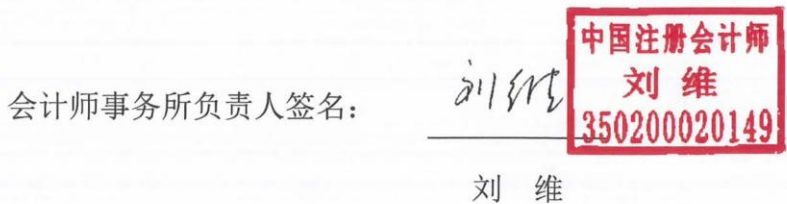 会计师事务所负责人签名：
刘维
中国注册会计师
刘 维
350200020149
刘 维